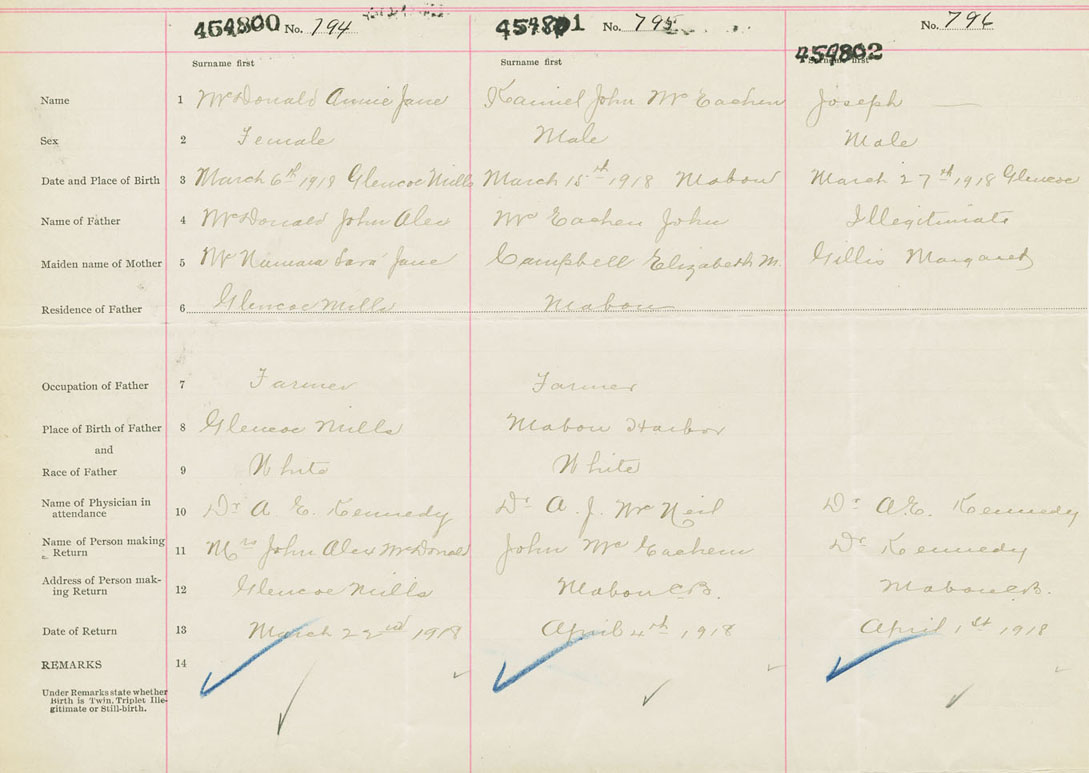 454800 No. 794 454801 No. 795 No. 796
454802
Surname first Surname first Surname first
Name 1 McDonald Annie Jane Daniel John McEachen Joseph —
Sex 2 Female Male Male
Date and Place of Birth 3 March 6th 1918 Glencoe Mills March 15th 1918 Mabou March 27th 1918 Glencoe
Name of Father 4 McDonald John Alex McEachen John Illegitimate
Maiden name of Mother 5 McNamara Sara Jane Campbell Elizabeth M. Gillis Margaret
Residence of Father 6 Glencoe Mills Mabou
Occupation of Father 7 Farmer Farmer
Place of Birth of Father 8 Glencoe Mills Mabou Harbor
and
Race of Father 9 White White
Name of Physician in
attendance 10 Dr A. E. Kennedy Dr A. J. McNeil Dr A.E. Kennedy
Name of Person making
Return 11 Mrs John Alex McDonald John McEachern Dr Kennedy
Address of Person mak-
ing Return 12 Glencoe Mills Mabou C.B. Mabou C.B.
Date of Return 13 March 22nd 1918 April 4th 1918 April 1st 1918
REMARKS 14
Under Remarks state whether
Birth is Twin, Triplet Ille-
gitimate or Still-birth.